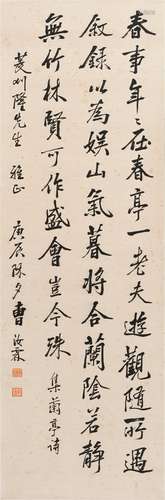 春事年々在春亭一老夫遊觀隨所遇
敘錄以為娛山氣暮將合蘭陰若靜
無竹林賢可作盛會豈今殊 集蘭亭詩
隆先生 雅正 庚辰除夕曹汝霖